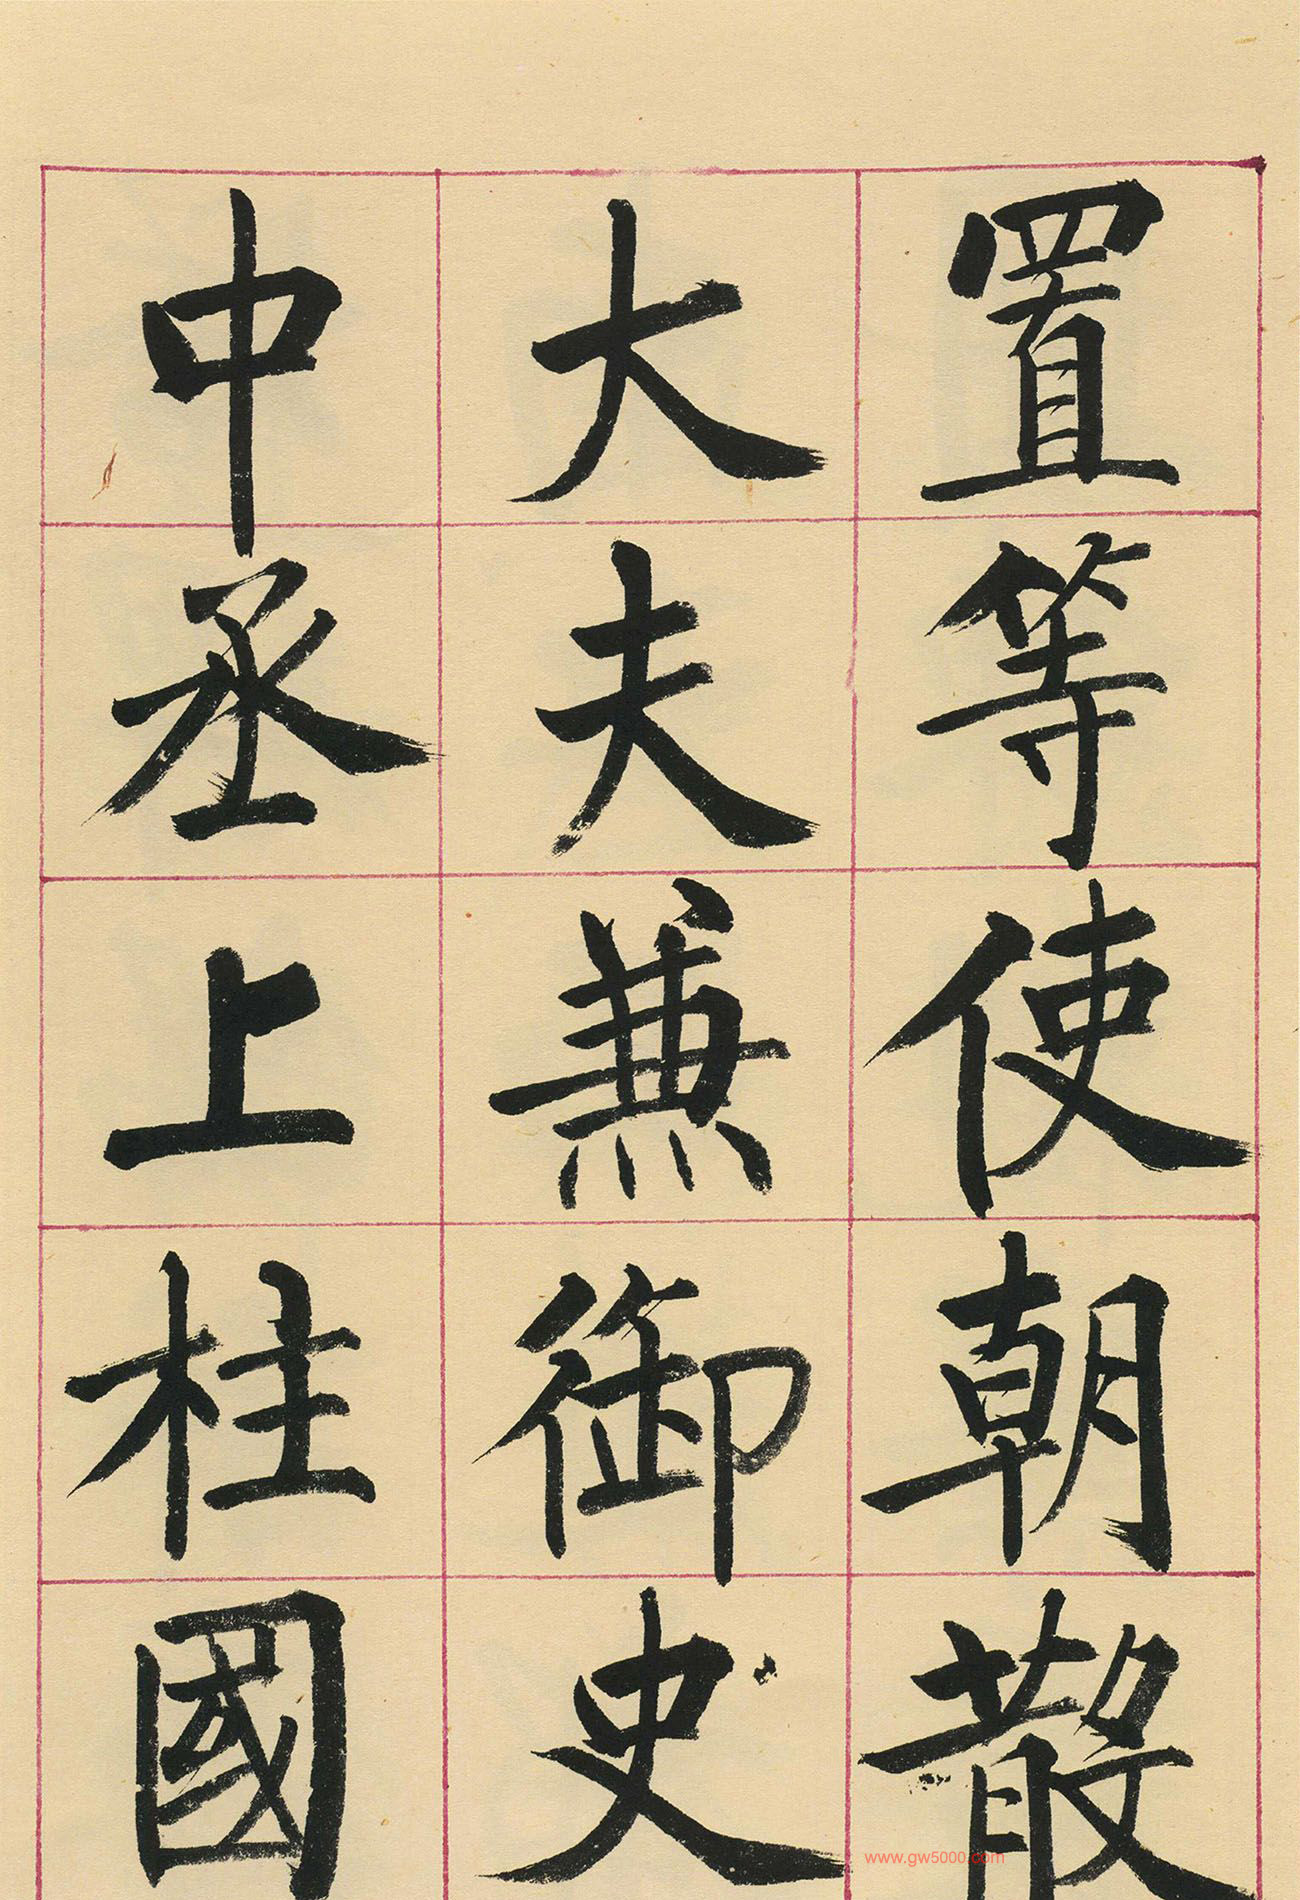 置等使朝散
大夫兼御史
中丞上柱國
www.gw5000.com